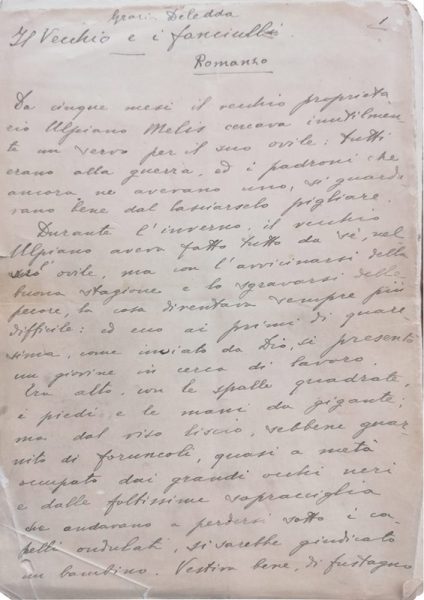 Grazia Deledda
1
Il Vecchio e i fanciulli.
Romanzo
Da cinque mesi il vecchio proprieta
rio Ulpiano Melis cercava inutilmen
te un servo per il suo ovile: tutti
erano alla guerra, ed i padroni che
ancora ne avevano uno, si guarda
vano bene dal lasciarselo pigliare.
Durante l'inverno, il vecchio
Ulpiano aveva fatto tutto da sé, nel
suo ovile, ma con l'avvicinarsi della
buona stagione e lo sgravarsi delle
pecore, la cosa diventava sempre più
difficile: ed ecco ai primi di quare
sima, come inviato da Dio, si presentò
un giovine in cerca di lavoro.
Era alto, con le spalle quadrate,
i piedi e le mani da gigante;
ma dal viso liscio, sebbene guar
nito di foruncoli, quasi a metà
occupato dai grandi occhi neri
e dalle foltissime sopracciglia
che andavano a perdersi sotto i ca
pelli ondulati, si sarebbe giudicato
un bambino. Vestiva bene, di fustagno